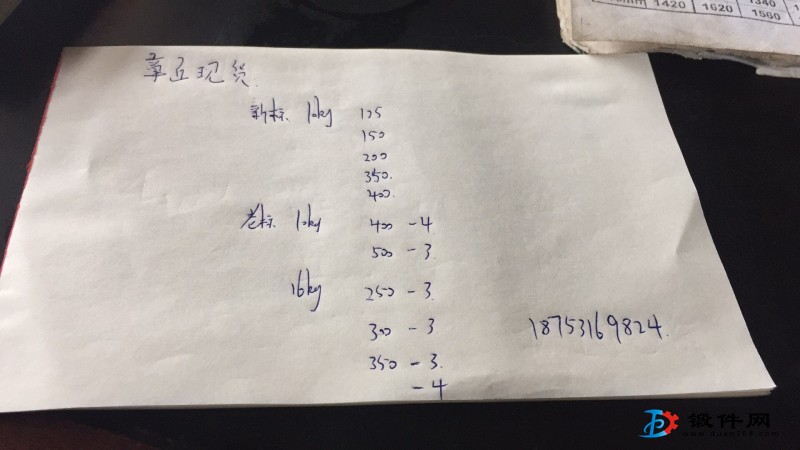 1420
1620
1340
1560
章丘现货.
新标 10kg 125
150
200
350.
400.
老标 10kg 400 - 4
500 - 3
16kg 250 - 3.
300 - 3
350 - 3.
- 4
18753169824.
锻件网